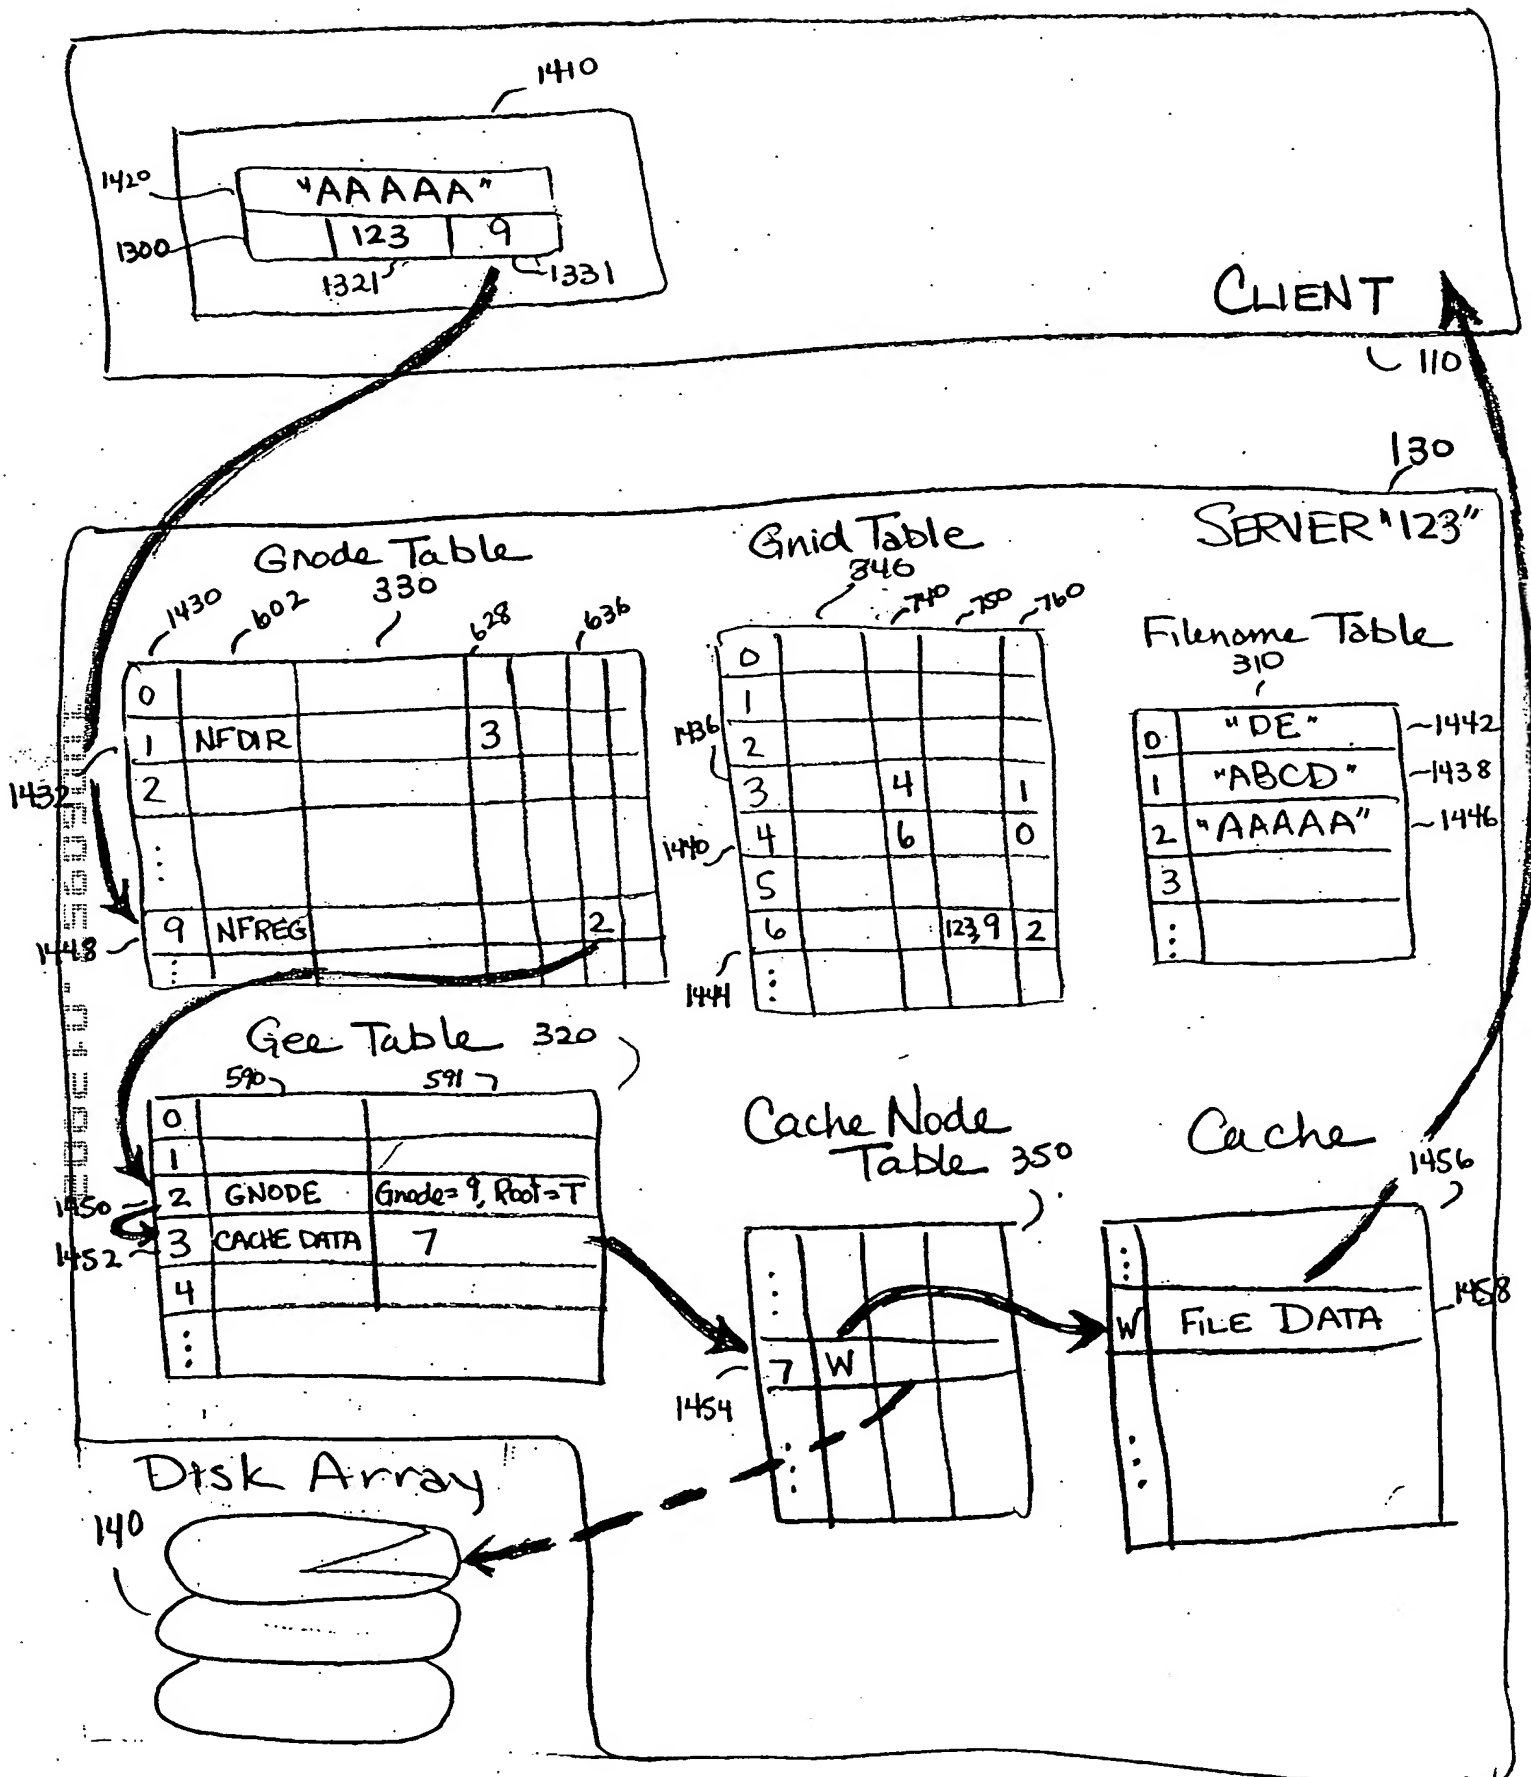 1410
1420
"AAAAA"
1300
123 9
1321 1331
CLIENT
110
130
SERVER "123"
Gnode Table
330
1430 602 628 636
0
1 NFDIR 3
2
1432
9 NFREG 2
1448
Gnid Table
346
740 750 760
0
1
1436
2
3 4 1
1440
4 6 0
5
6 123,9 2
1444
Filename Table
310
0 "DE" 1442
1 "ABCD" 1438
2 "AAAAA" 1446
3
Gee Table 320
590 591
0
1
1450
2 GNODE Gnode=9, Root=T
1452
3 CACHE DATA 7
4
Cache Node
Table 350
7 W
1454
Cache
1456
W FILE DATA
1458
Disk Array
140